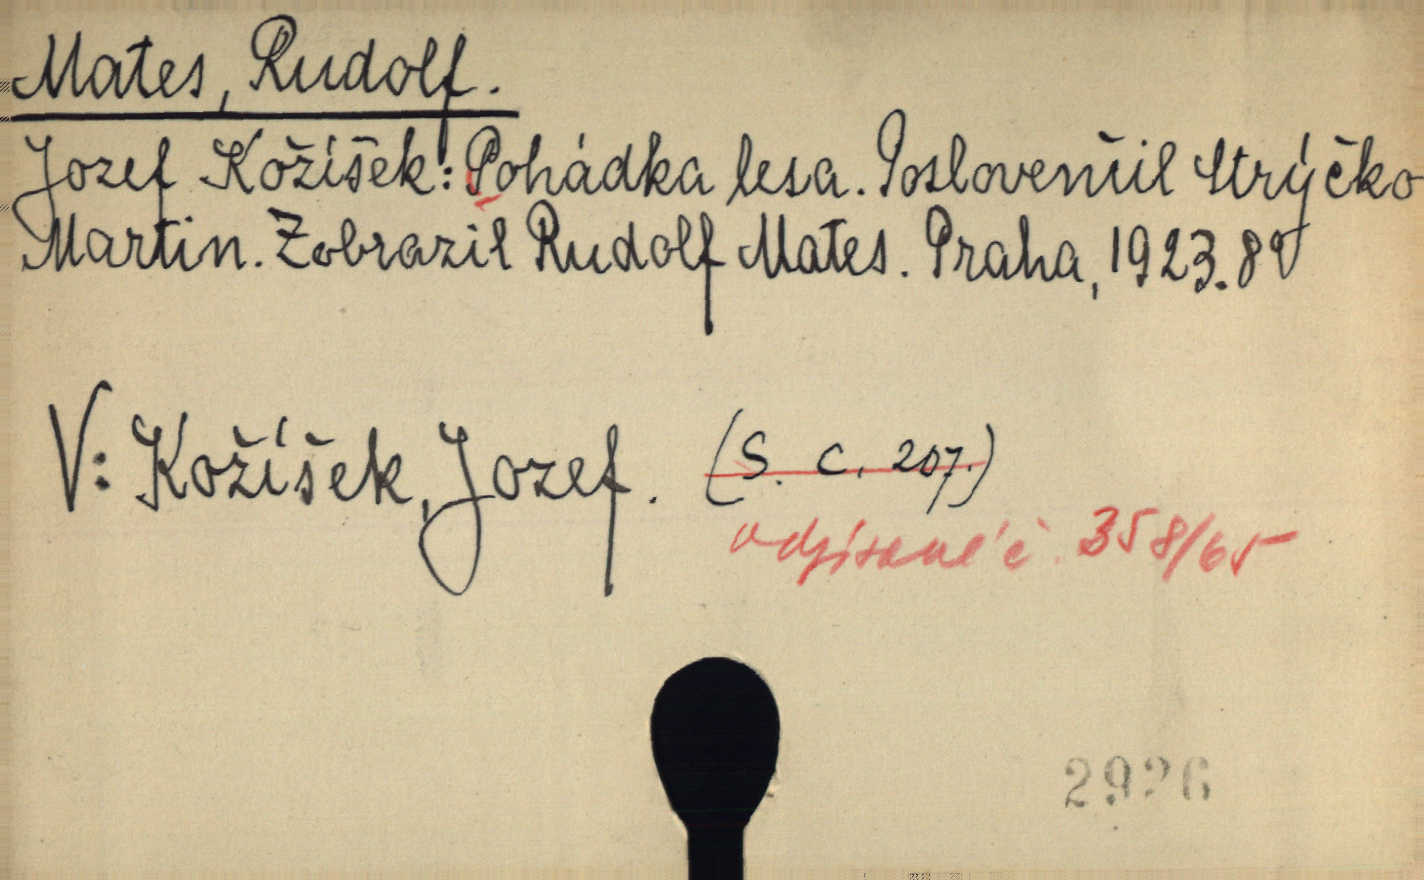 Mates, Rudolf.
Jozef Kožíšek: Pohádka lesa. Poslovenčil Strýčko
Martin. Zobrazil Rudolf Mates. Praha, 1923. 8°
V: Kožíšek, Jozef. (S. C. 207.)
odpísané č. 358/65
2926